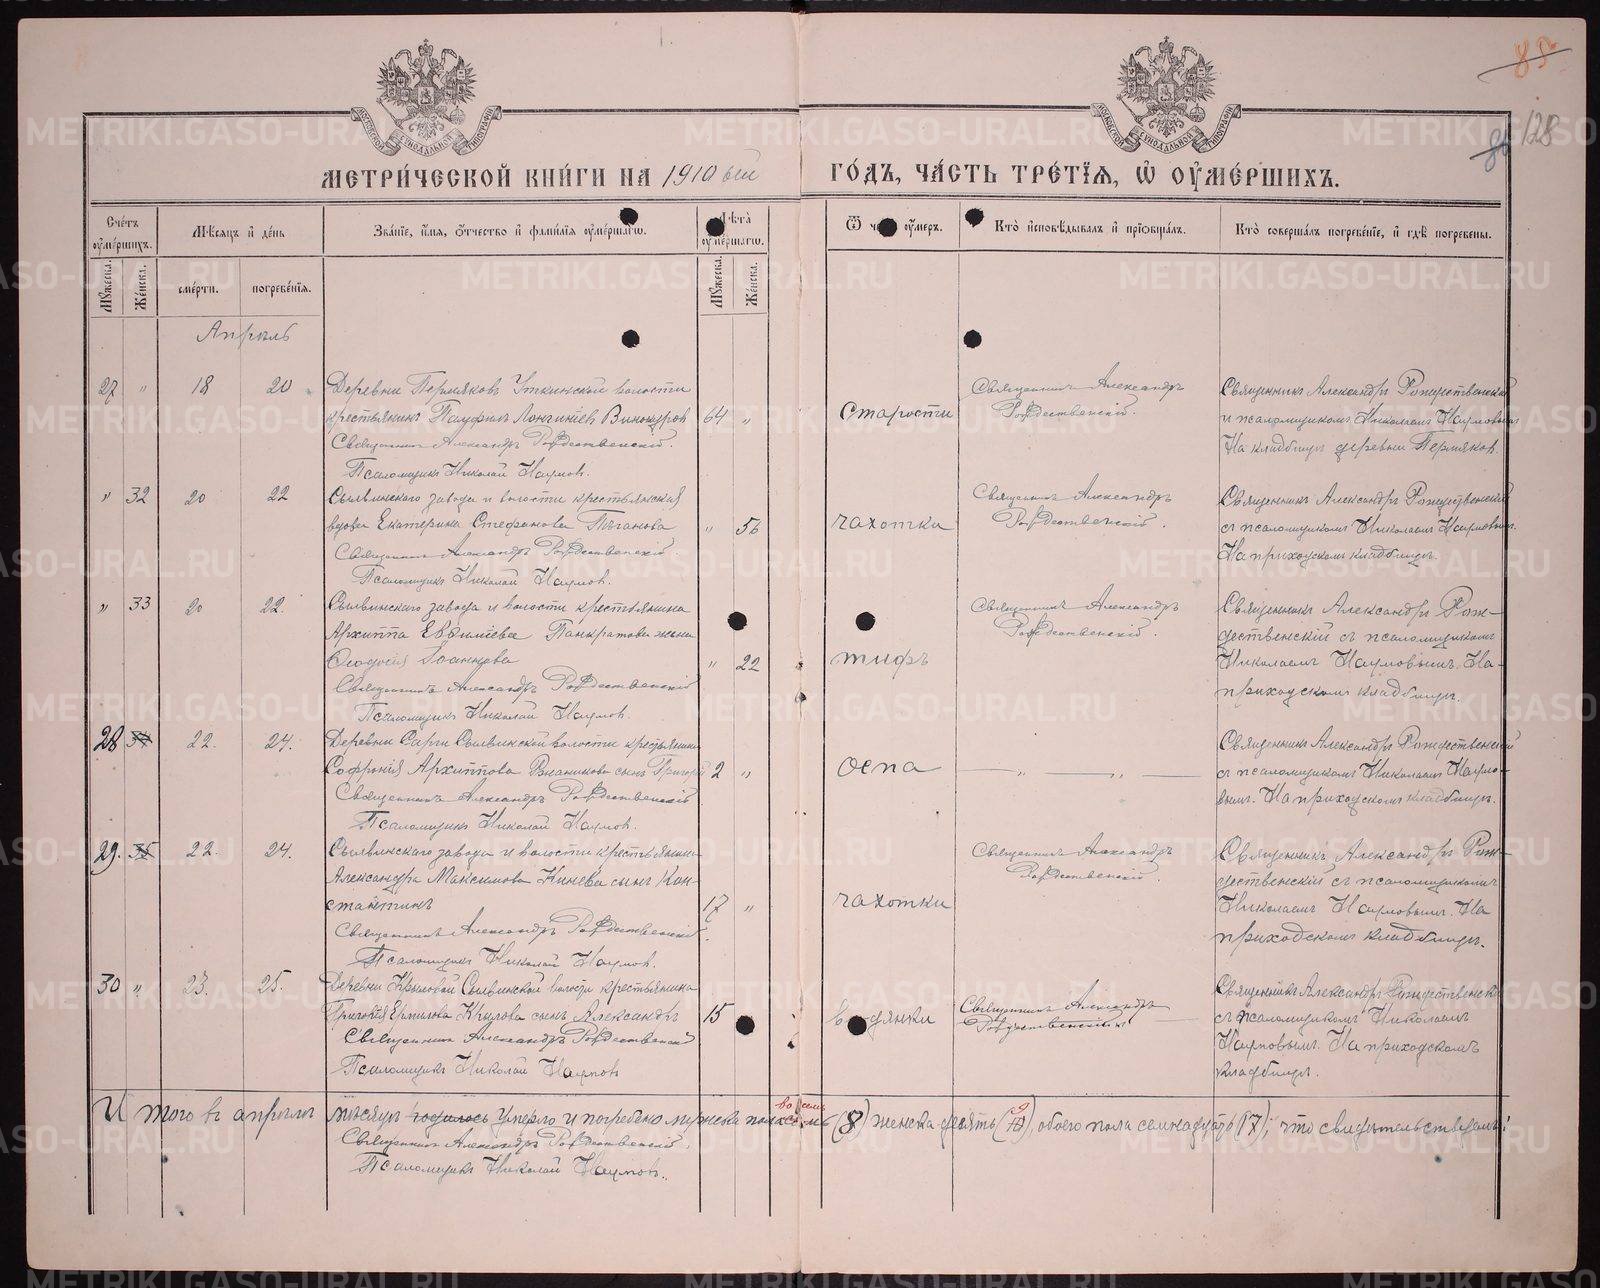 85
86 128
МОСКОВСКОЙ СѴНОДАЛЬНОЙ ТИПОГРАФІИ
МОСКОВСКОЙ СѴНОДАЛЬНОЙ ТИПОГРАФІИ
МЕТРИ́ЧЕСКОЙ КНИ́ГИ НА 1910 ый ГО́ДЪ, ЧА́СТЬ ТРЕ́ТІЯ, Ѡ ОУМЕ́РШИХЪ.
Сче́тъ оуме́ршихъ.
Мѣсяцъ и де́нь
Зва́ніе, и́мя, о́тчество и фами́лія оуме́ршагѡ.
Лѣта̀ оуме́ршагѡ.
Ѿ чегѡ̀ оу́меръ.
Кто̀ исповѣ́дывалъ и пріѡбща́лъ.
Кто̀ соверша́лъ погребе́ніе, и гдѣ̀ погребе́ны.
Мꙋ́жеска. Же́нска. сме́рти. погребе́нія. Мꙋ́жеска. Же́нска.
Апрѣль
27 " 18 20
Деревни Пермяковъ Уткинской волости
крестьянинъ Памфилъ Лонгиніевъ Винокуровъ 64 "
Священникъ Александръ Рождественскій.
Псаломщикъ Николай Наумов.
Старости
Священникъ Александръ
Рождественскій.
Священникъ Александръ Рождественскій
и псаломщикомъ Николаемъ Наумовымъ
На кладбищѣ деревни Пермяков.
" 32 20 22
Сылвинскаго завода и волости крестьянская
вдова Екатерина Стефанова " 56
Священникъ Александръ Рождественскій.
Псаломщикъ Николай Наумов.
чахотки
Священникъ Александръ
Рождественскій.
Священникъ Александръ Рождественскій
съ псаломщикомъ Николаемъ Наумовымъ.
На приходскомъ кладбищѣ.
" 33 20 22.
Сылвинскаго завода и волости крестьянина
Архиппа Евѳиміева Панкратова жена
Ѳеодосія Іоаннова " 22
Священникъ Александръ Рождественскій
Псаломщикъ Николай Наумов.
тифъ
Священникъ Александръ
Рождественскій.
Священникъ Александръ Рож-
дественскій съ псаломщикомъ
Николаемъ Наумовымъ. На-
приходскомъ кладбищѣ.
28 34 22. 24.
Деревни Сарги Сылвинской волости крестьянина
Софронія Архиппова сынъ Григорій 2 "
Священникъ Александръ Рождественскій
Псаломщикъ Николай Наумов.
оспа
— " — " —
Священникъ Александръ Рождественскій
съ псаломщикомъ Николаемъ Наумо-
вымъ. На приходскомъ кладбищѣ.
29. 35 22. 24.
Сылвинскаго завода и волости крестьянина
Александра Максимова Кинева сынъ Кон-
стантинъ 17 "
Священникъ Александръ Рождественскій.
Псаломщикъ Николай Наумов.
чахотки
Священникъ Александръ
Рождественскій.
Священникъ Александръ Рож-
дественскій съ псаломщикомъ
Николаемъ Наумовымъ. На
приходскомъ кладбищѣ.
30 " 23. 25.
Деревни Крыловой Сылвинской волости крестьянина
Григорія Ермилова Крылова сынъ Александръ 15
Священникъ Александръ Рождественскій
Псаломщикъ Николай Наумов
водянки
Священникъ Александръ
Рождественскій.
Священникъ Александръ Рождественскій
съ псаломщикомъ Николаемъ
Наумовымъ. На приходскомъ
кладбищѣ.
Итого въ апрѣлѣ мѣсяцѣ родилось умерло и погребено мужеска пола восемь (8) женска девять (9), обоего пола семнадцать (17); что свидѣтельствуемъ:
Священникъ Александръ Рождественскій.
Псаломщикъ Николай Наумов.
METRIKI.GASO-URAL.RU